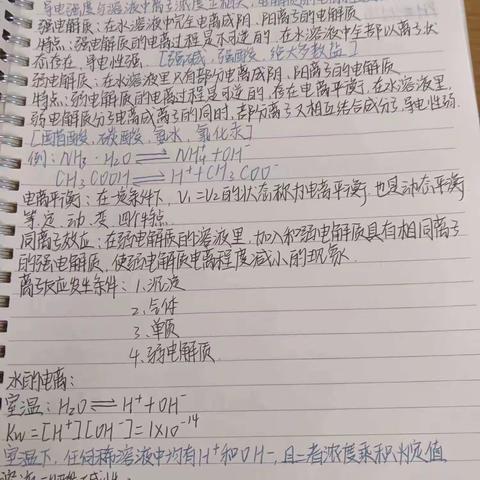 导电强度与溶液中离子浓度
强电解质：在水溶液中完全电离成阴、阳离子的电解质
特点：强电解质的电离过程是不可逆的，在水溶液中全部以离子状
态存在，导电性强。[强碱，强酸，绝大多数盐]
弱电解质：在水溶液里只有部分电离成阴、阳离子的电解质
特点：弱电解质的电离过程是可逆的，存在电离平衡，在水溶液里，
弱电解质分子电离成离子的同时，部分离子又相互结合成分子，导电性弱.
[醋酸，碳酸，氨水，氯化汞]
例：NH₃·H₂O ⇌ NH₄⁺+OH⁻
CH₃COOH ⇌ H⁺+CH₃COO⁻
电离平衡：在一定条件下，V₁=V₂的状态称为电离平衡，也是动态平衡
等、定、动、变 四个特点.
同离子效应：在弱电解质的溶液里，加入和弱电解质具有相同离子
的强电解质，使弱电解质电离程度减小的现象.
离子反应发生条件：1.沉淀
2.气体
3.单质
4.弱电解质
水的电离：
室温：H₂O ⇌ H⁺+OH⁻
Kw=[H⁺][OH⁻]=1×10⁻¹⁴
室温下，任何稀溶液中均有H⁺和OH⁻，且二者浓度乘积为定值